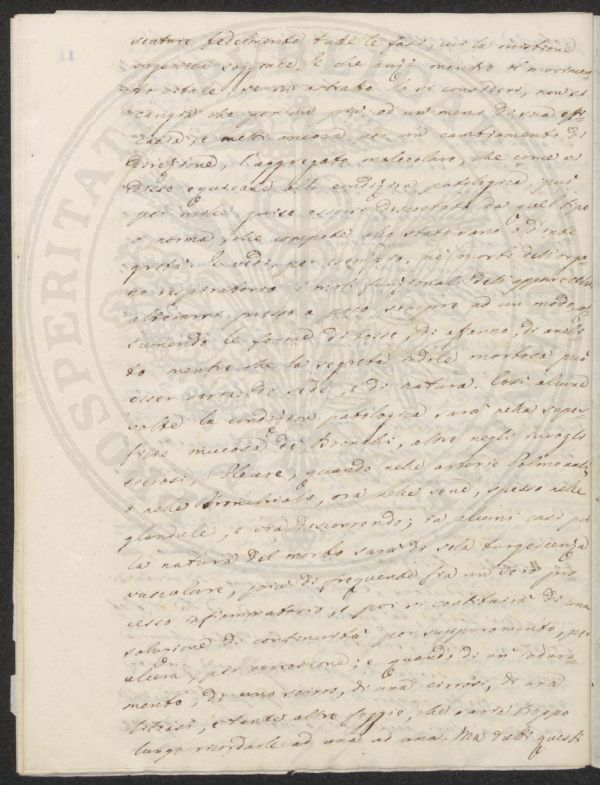 sentare fedelmente tutte le fasi, cui la
organica soggiace. E che anzi mentre il movimen
to vitale astratto lo si consideri, non si
cangia che per un più od un meno di sua effi
cacia, e molti ancora per un cambiamento di
direzione, l'aggregato molecolare, che come si
disse alla condizione patologica, può
per mille guise essersi discostato da quel tipo
o norma, che compete allo stato sano o d'inte
grità. E vedi, per esempio, ne' morbi dell'orga
no respiratorio i moti funzionali dell'apparecchio
alterarsi presso a poco sempre ad un modo, as
sumendo le forme di tosse, di affanno, di aneli
to mentre che la segreta indole morbosa può
esser varia di sede, e di natura. Così alcune
volte la condizione patologica sarà nella super
ficie mucosa de' Bronchi, altre negli invogli
sierosi, Pleure, quando nelle arterie Polmonali
o nelle Bronchiali, ora nelle vene, spesso nelle
glandule, e via discorrendo; in alcuni casi poi
la natura del morbo sarà di sola turgescenza
vascolare, più di frequente fia un vero pro
cesso infiammatorio, e poi si costituirà di una
soluzione di continuità per suppuramento, per
ulcera, per corrosione; e quando di un indura=
mento, di uno scirro, di una cirrosi, di una
litiasi, e tante altre foggie, che saria troppo
lungo ricordarle ad una ad una. Ma tutti questi